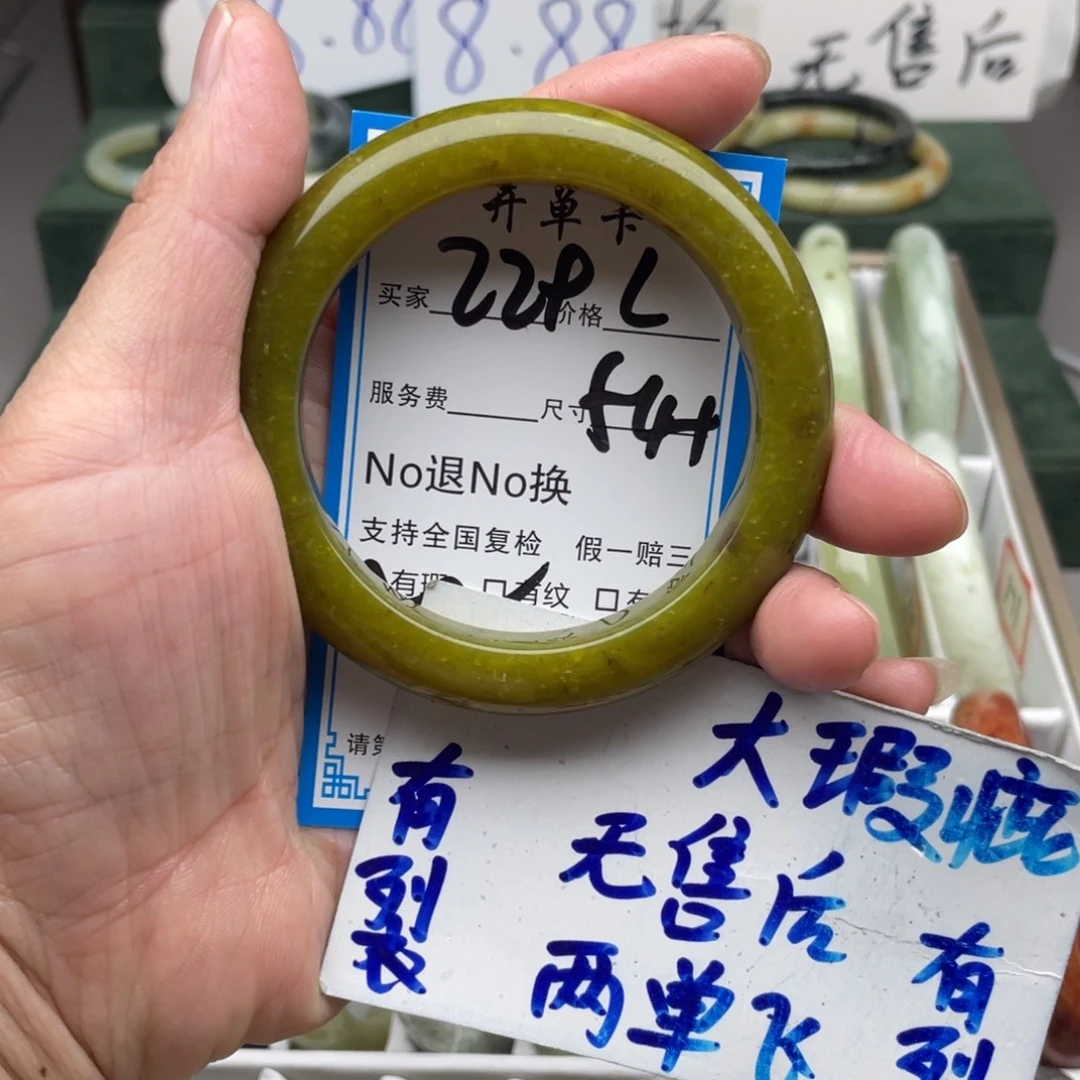 8.88
8.88
无售后
开单卡
买家 价格
服务费 尺寸 54H
No退No换
支持全国复检 假一赔三
有瑕 口有纹 口有
请
大瑕疵
有裂
无售后
两单飞
有裂